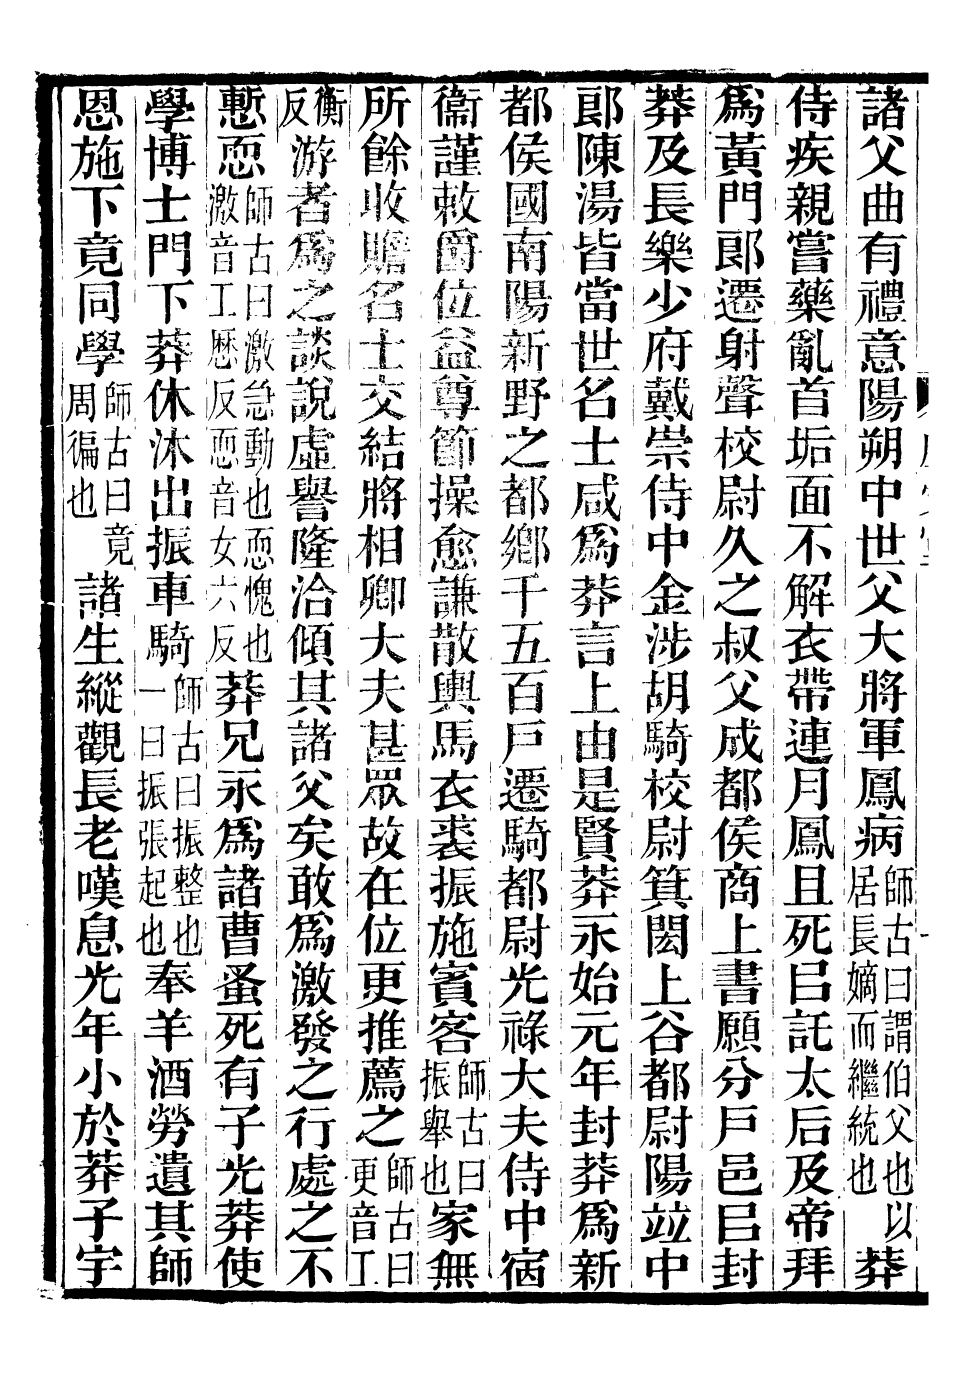 諸父曲有禮意陽朔中世父大將軍鳳病師古曰謂伯父也以居長嫡而繼統也莽
侍疾親嘗藥亂首垢面不解衣帶連月鳳且死㠯託太后及帝拜
爲黃門郎遷射聲校尉久之叔父成都侯商上書願分戶邑㠯封
莽及長樂少府戴崇侍中金涉胡騎校尉箕閎上谷都尉陽竝中
郎陳湯皆當世名士咸爲莽言上由是賢莽永始元年封莽爲新
都侯國南陽新野之都鄉千五百戶遷騎都尉光祿大夫侍中宿
衞謹敕爵位益尊節操愈謙散輿馬衣裘振施賓客師古曰振舉也家無
所餘收贍名士交結將相卿大夫甚眾故在位更推薦之師古曰更音工
衡反游者爲之談說虛譽隆洽傾其諸父矣敢爲激發之行處之不
慙恧師古曰激急動也恧愧也激音工歷反恧音女六反莽兄永爲諸曹蚤死有子光莽使
學博士門下莽休沐出振車騎師古曰振整也一曰振張起也奉羊酒勞遺其師
恩施下竟同學師古曰竟周徧也諸生縱觀長老嘆息光年小於莽子宇